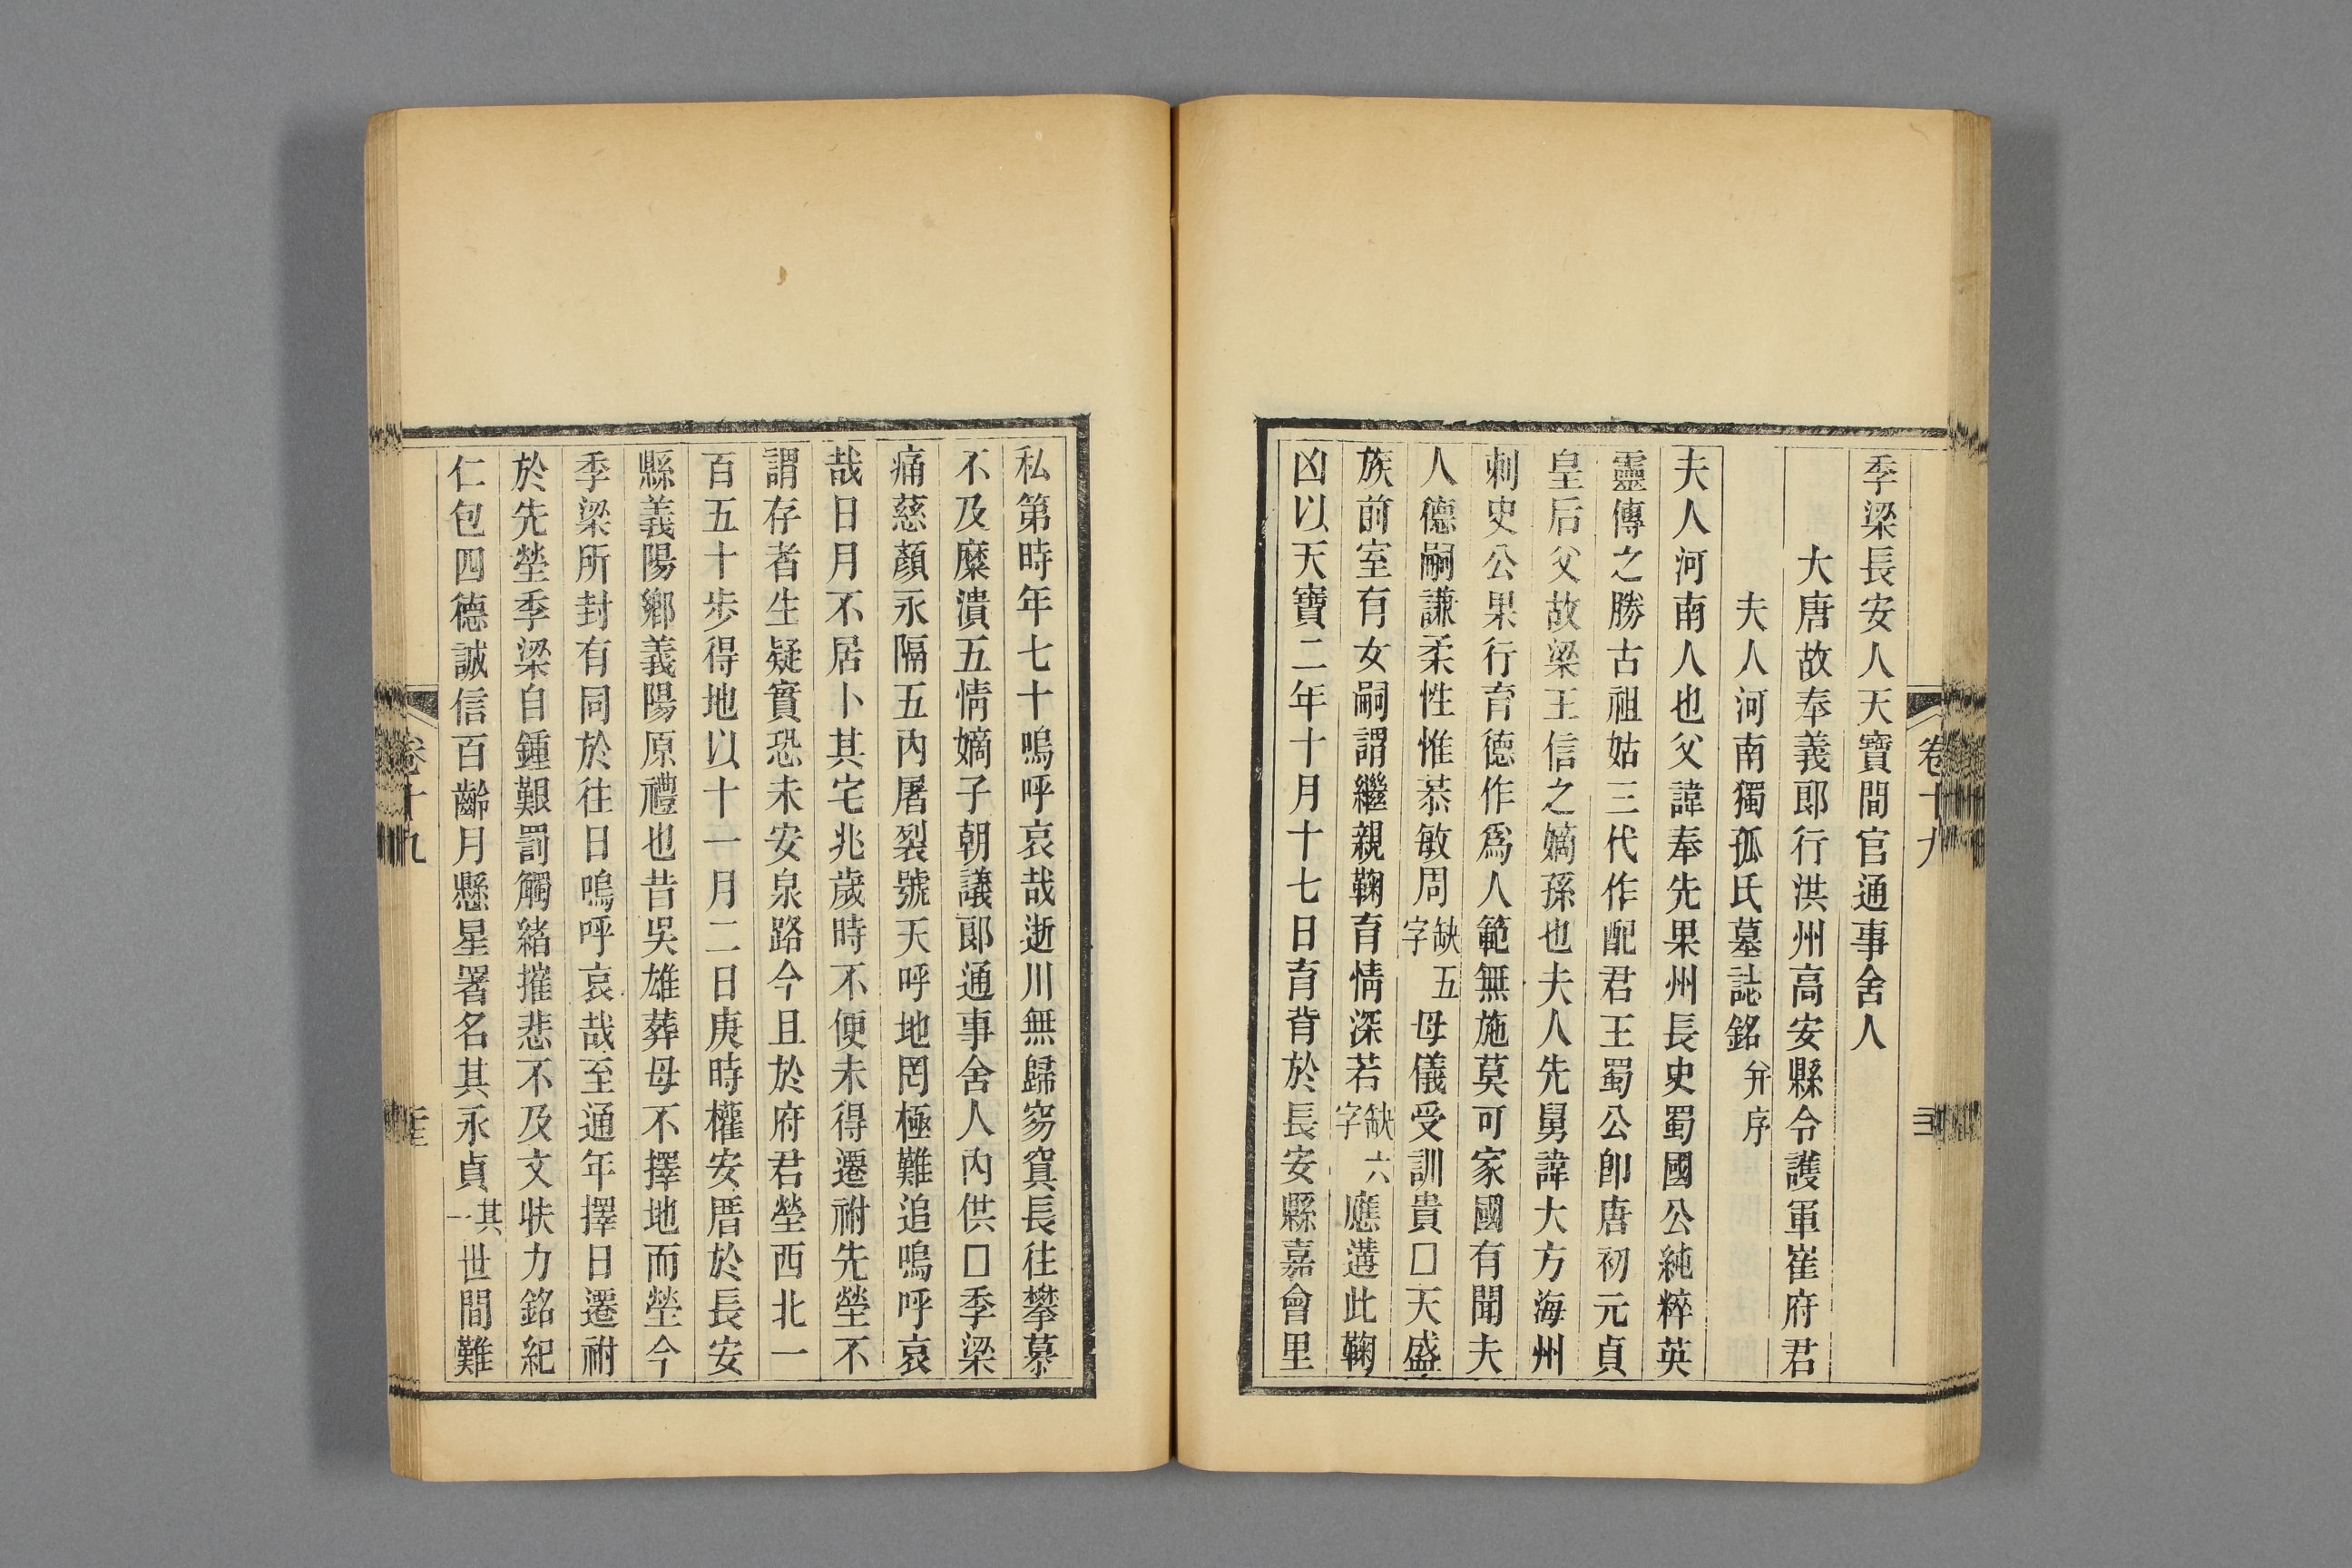 季梁長安人天寶間官通事舍人
大唐故奉義郎行洪州高安縣令護軍崔府君
夫人河南獨孤氏墓誌銘并序
夫人河南人也父諱奉先果州長史蜀國公純粹英
靈傳之勝古祖姑三代作配君王蜀公卽唐初元貞
皇后父故梁王信之嫡孫也夫人先舅諱大方海州
刺史公果行育德作爲人範無施莫可家國有聞夫
人德嗣謙柔性惟恭敏周缺五字母儀受訓貴□天盛
族前室有女嗣謂繼親鞠育情深若缺六字應遘此鞠
凶以天寶二年十月十七日育背於長安縣嘉會里
卷十九
三
私第時年七十嗚呼哀哉逝川無歸窈窴長往攀慕
不及糜潰五情嫡子朝議郎通事舍人內供□季梁
痛慈顏永隔五內屠裂號天呼地罔極難追嗚呼哀
哉日月不居卜其宅兆歲時不便未得遷祔先塋不
謂存者生疑實恐未安泉路今且於府君塋西北一
百五十步得地以十一月二日庚時權安厝於長安
縣義陽鄉義陽原禮也昔吳雄葬母不擇地而塋今
季梁所封有同於往日嗚呼哀哉至通年擇日遷祔
於先塋季梁自鍾艱罰觸緒摧悲不及文狀力銘紀
仁包四德誠信百齡月懸星署名其永貞其一世間難
卷十九